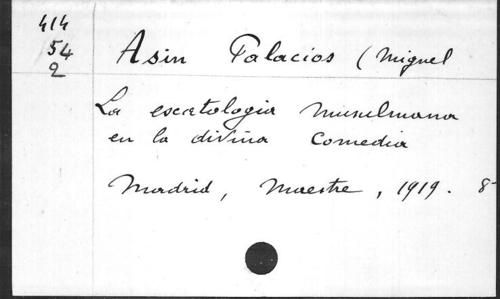 414
54
2
Asin Palacios (Miguel
La escatologia musulmana
en la divina Comedia
Madrid, Maestre, 1919. 8-